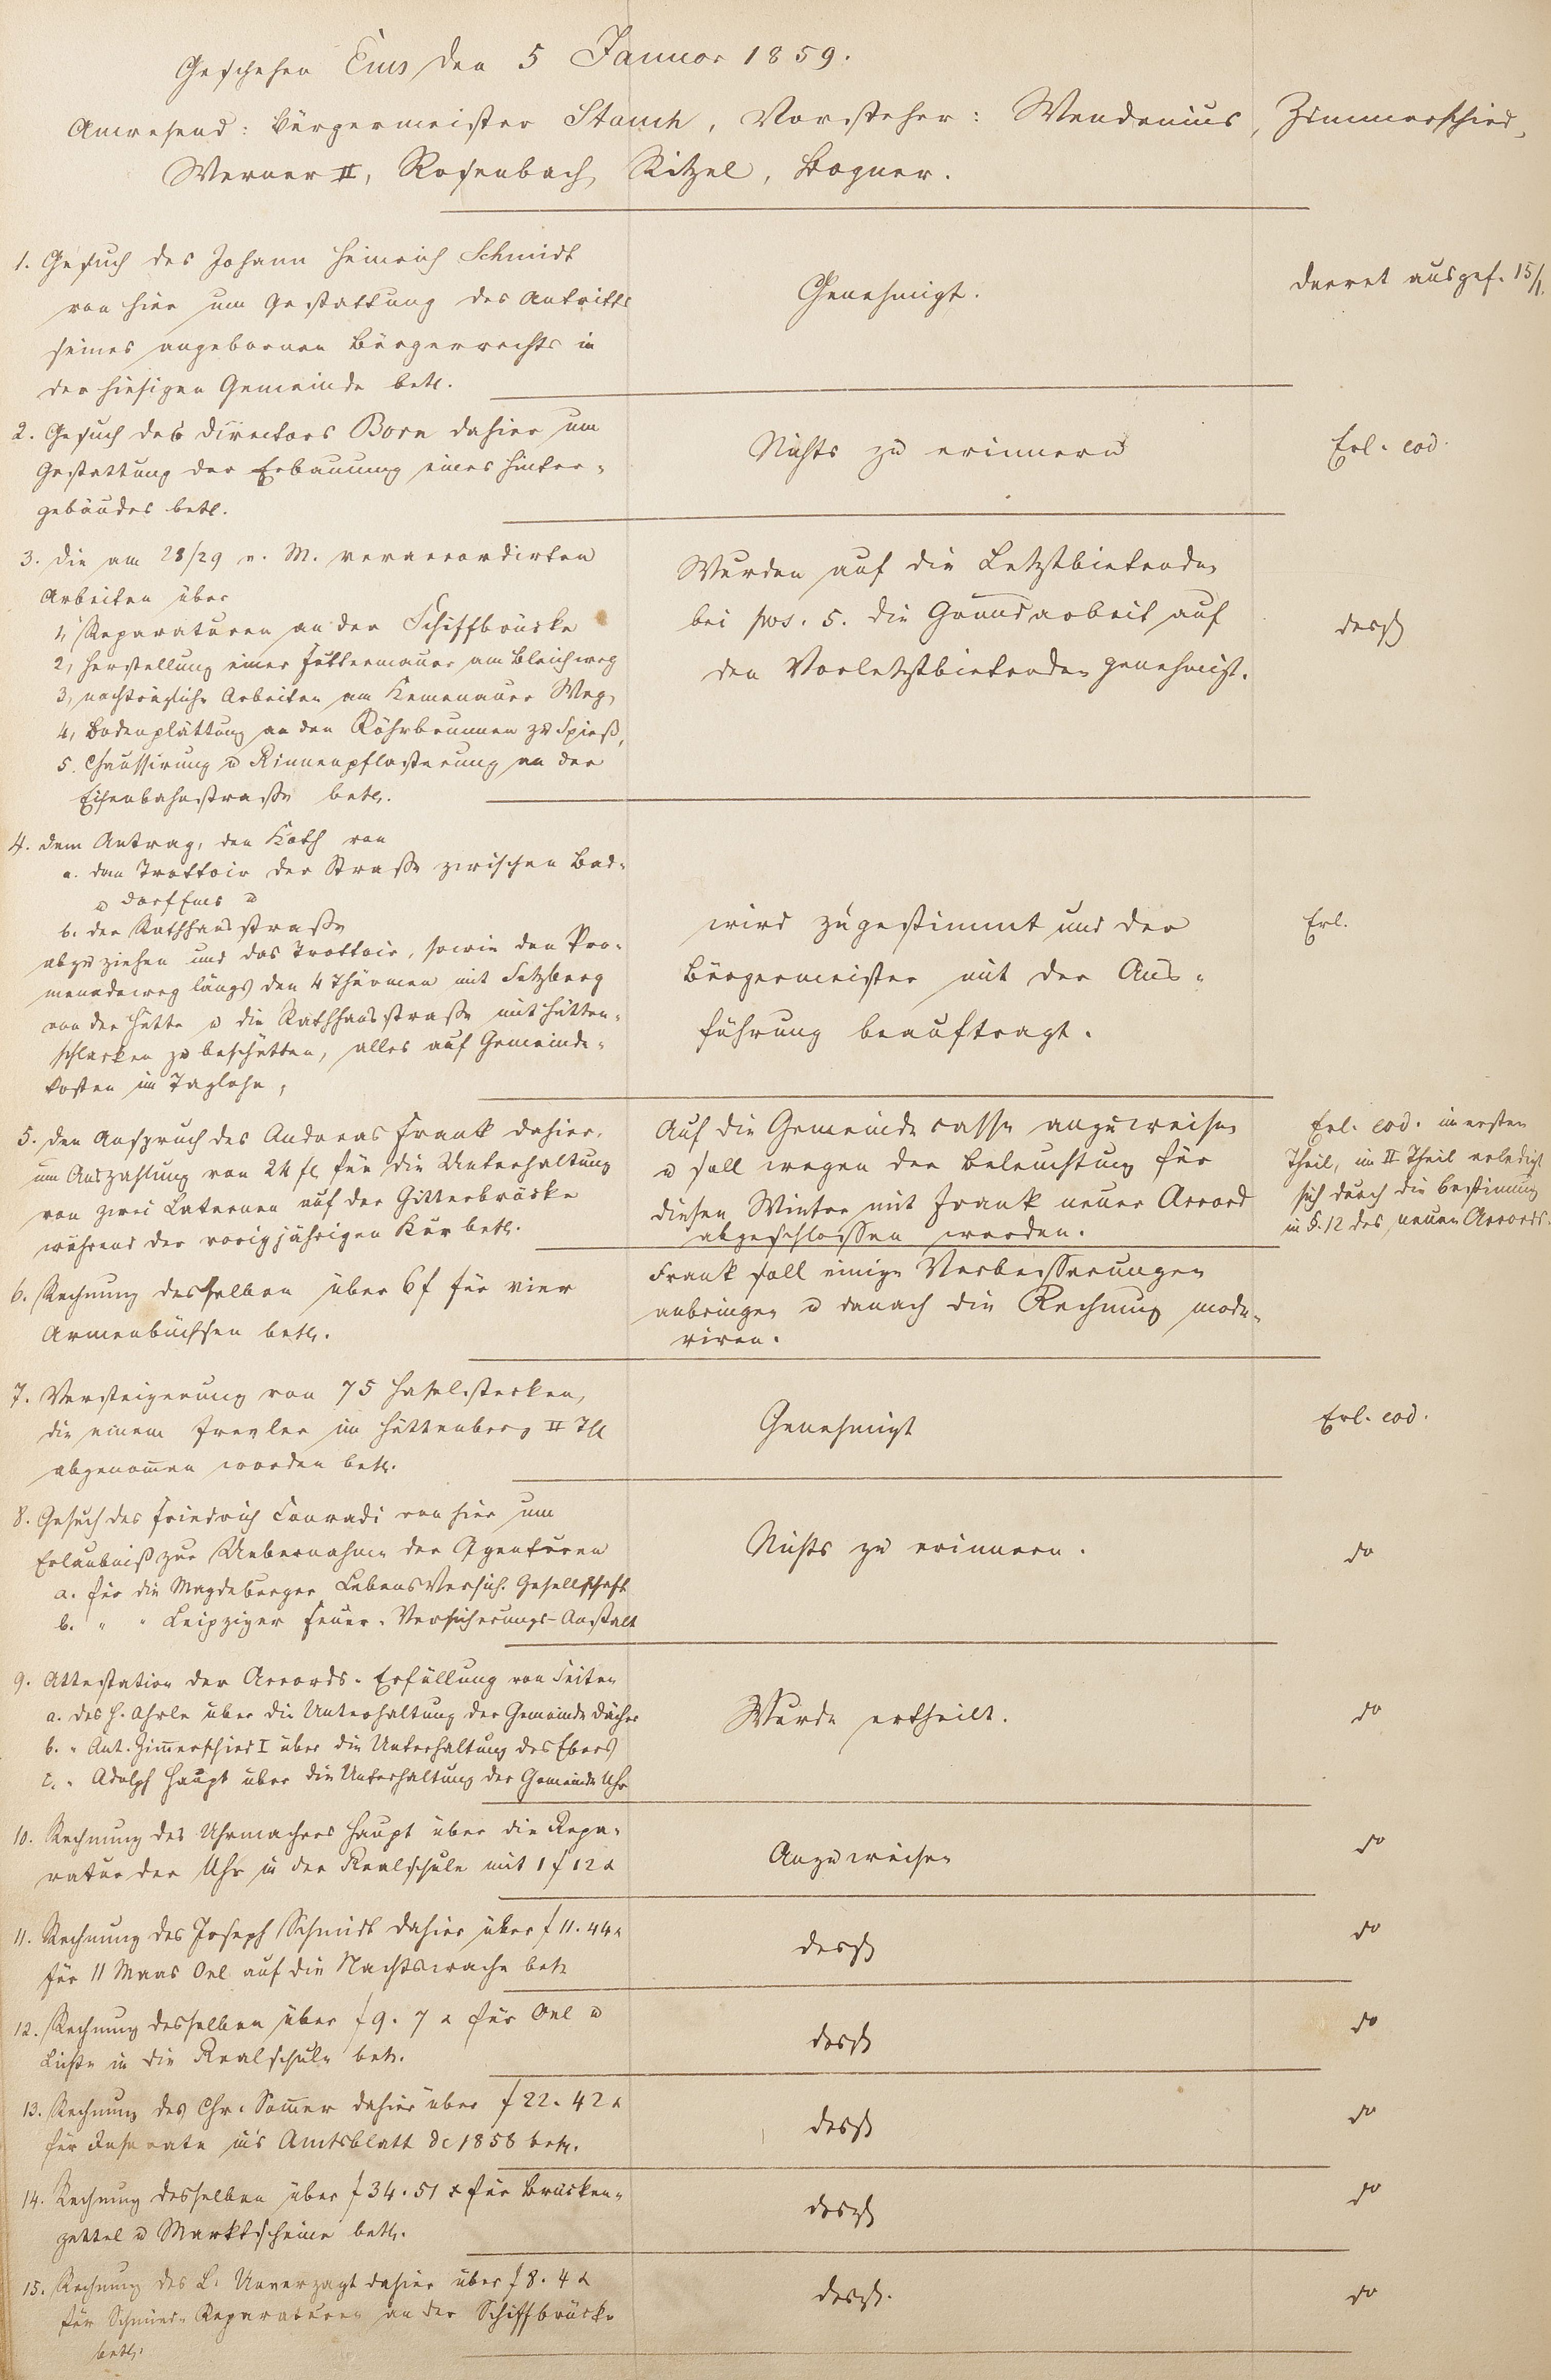 Geschehen Ems den 5 Januar 1859.
Anwesend: Bürgermeister Stauch, Vorsteher: Wendenius, Zimmerschied,
Werner II, Rosenbach, Kitzel, Bogner.
1. Gesuch des Johann Heinrich Schmidt
von hier um Gestattung des Antritts
seines angebornen Bürgerrechts in
der hiesigen Gemeinde betr.
Genehmigt.
Decret ausgef. 15/1.
2. Gesuch des Directors Born dahier um
Gestattung der Erbauung eines Hinter-
gebäudes betr.
Nichts zu erinnern
Erl. eod.
3. Die am 28/29 v. M. veraccordirten
Arbeiten über
1, Reparaturen an der Schiffbrücke
2, Herstellung einer Futtermauer am Bleichweg
3, nachträgliche Arbeiten am Kemenauer Weg,
4, Bodenplättung an den Röhrbrunnen zu Spieß,
5. Chaussirung u Rinnenpflasterung an der
Eisenbahnstraße betr.
Wurden auf die Letztbietenden
bei pos. 5. die Grundarbeit auf
den Vorletztbietenden genehmigt.
desgl
4. Dem Antrag, den Koth von
a. dem Trottoir der Straße zwischen Bad-
u Dorf Ems u
b. der Rathhausstraße
abzuziehen und das Trottoir, sowie den Pro-
menadeweg längs den 4 Thürmen mit Setzberg
von der Hütte u die Rathhausstraße mit Hütten-
schlacken zu beschütten, alles auf Gemeinde-
kosten im Taglohn,
wird zugestimmt und der
Bürgermeister mit der Aus-
führung beauftragt.
Erl.
5. Den Anspruch des Andreas Frank dahier,
um Auszahlung von 24 fl für die Unterhaltung
von zwei Laternen auf der Gitterbrücke
während der vorigjährigen Kur betr.
Auf die Gemeindecasse anzuweisen
u soll wegen der Beleuchtung für
diesen Winter mit Frank neuer Accord
abgeschlossen werden.
Erl. eod. im ersten
Theil, im II Theil erledigt
sich durch die Bestimung
in §. 12 des neuen Accords.
6. Rechnung desselben über 6 f für vier
Armenbüchsen betr.
Frank soll einige Verbesserungen
anbringen u danach die Rechnung mode-
riren.
7. Versteigerung von 75 Haselstecken,
die einem Frevler im Hüttenberg II Thl
abgenomen worden betr.
Genehmigt
Erl. eod.
8. Gesuch des Friedrich Conradi von hier um
Erlaubniß zur Uebernahme der Agenturen
a. für die Magdeburger Lebens Versich. Gesellschaft
b. " " Leipziger Feuer-Versicherungs-Anstalt
Nichts zu erinnern.
do
9. Attestation der Accords-Erfüllung von Seiten
a. des H. Ahrle über die Unterhaltung der Gemeinde Dächer
b. " Ant. Zimerschied I über die Unterhaltung des Ebers
c. " Adolph Haupt über die Unterhaltung der Gemeinde Uhr
Wurde ertheilt.
do
10. Rechnung des Uhrmachers Haupt über die Repa-
ratur der Uhr in der Realschule mit 1 f 12 x
Anzuweisen
do
11. Rechnung des Joseph Schmidt dahier über f 11. 44 x
für 11 Maas Oel auf die Nachtswache betr
desgl
do
12. Rechnung desselben über f 9. 7 x für Oel u
Lichte in die Realschule betr.
desgl
do
13. Rechnung des Chr. Somer dahier über f 22. 42 x
für Inserate in's Amtsblatt de 1858 betr.
desgl
do
14. Rechnung desselben über f 34. 51 x für Brücken-
zettel u Marktscheine betr.
desgl
do
15. Rechnung des L. Unverzagt dahier über f 8. 4 x
für Schmied-Reparaturen an der Schiffbrücke
betr.
desgl.
do